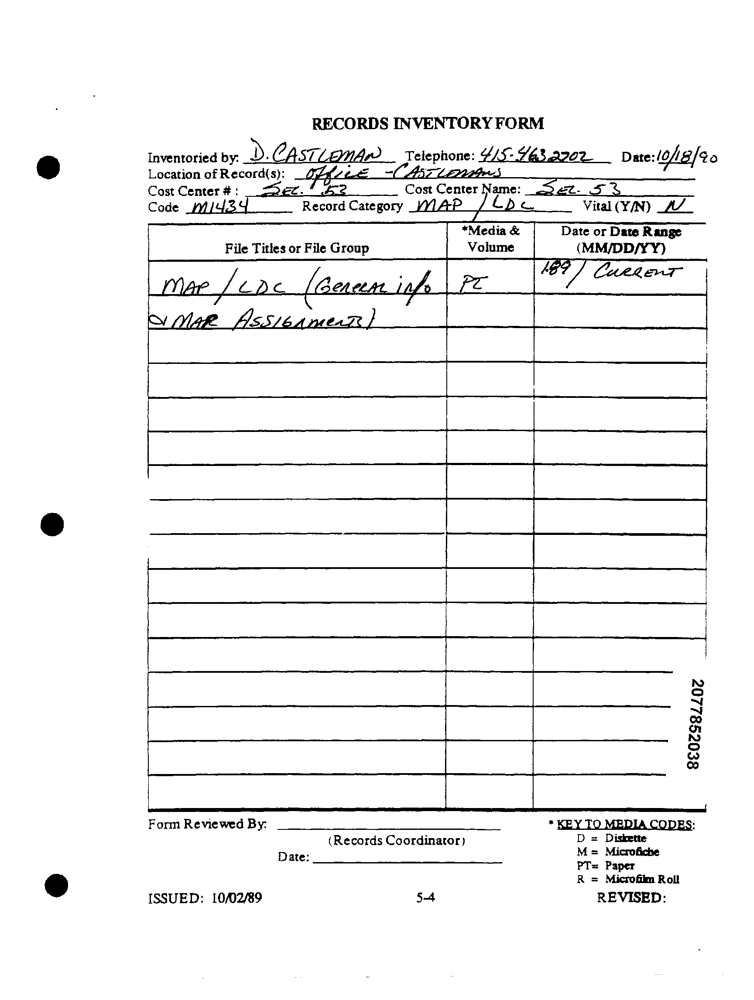 RECORDS INVENTORY FORM
Inventoried by: D. CASTLEMAN Telephone: 415-463-2702 Date: 10/18/90
Location of Record(s): Office - CASTLEMANS
Cost Center # : SEC. 53 Cost Center Name: SEC. 53
Code M1434 Record Category MAP / LDC Vital (Y/N) N
File Titles or File Group *Media & Volume Date or Date Range (MM/DD/YY)
MAP / LDC (General info PT 1.89 / CURRENT
& MAR ASSIGNMENTS)
Form Reviewed By:
(Records Coordinator)
Date:
* KEY TO MEDIA CODES:
D = Diskette
M = Microfiche
PT= Paper
R = Microfilm Roll
ISSUED: 10/02/89 5-4 REVISED:
2077852038